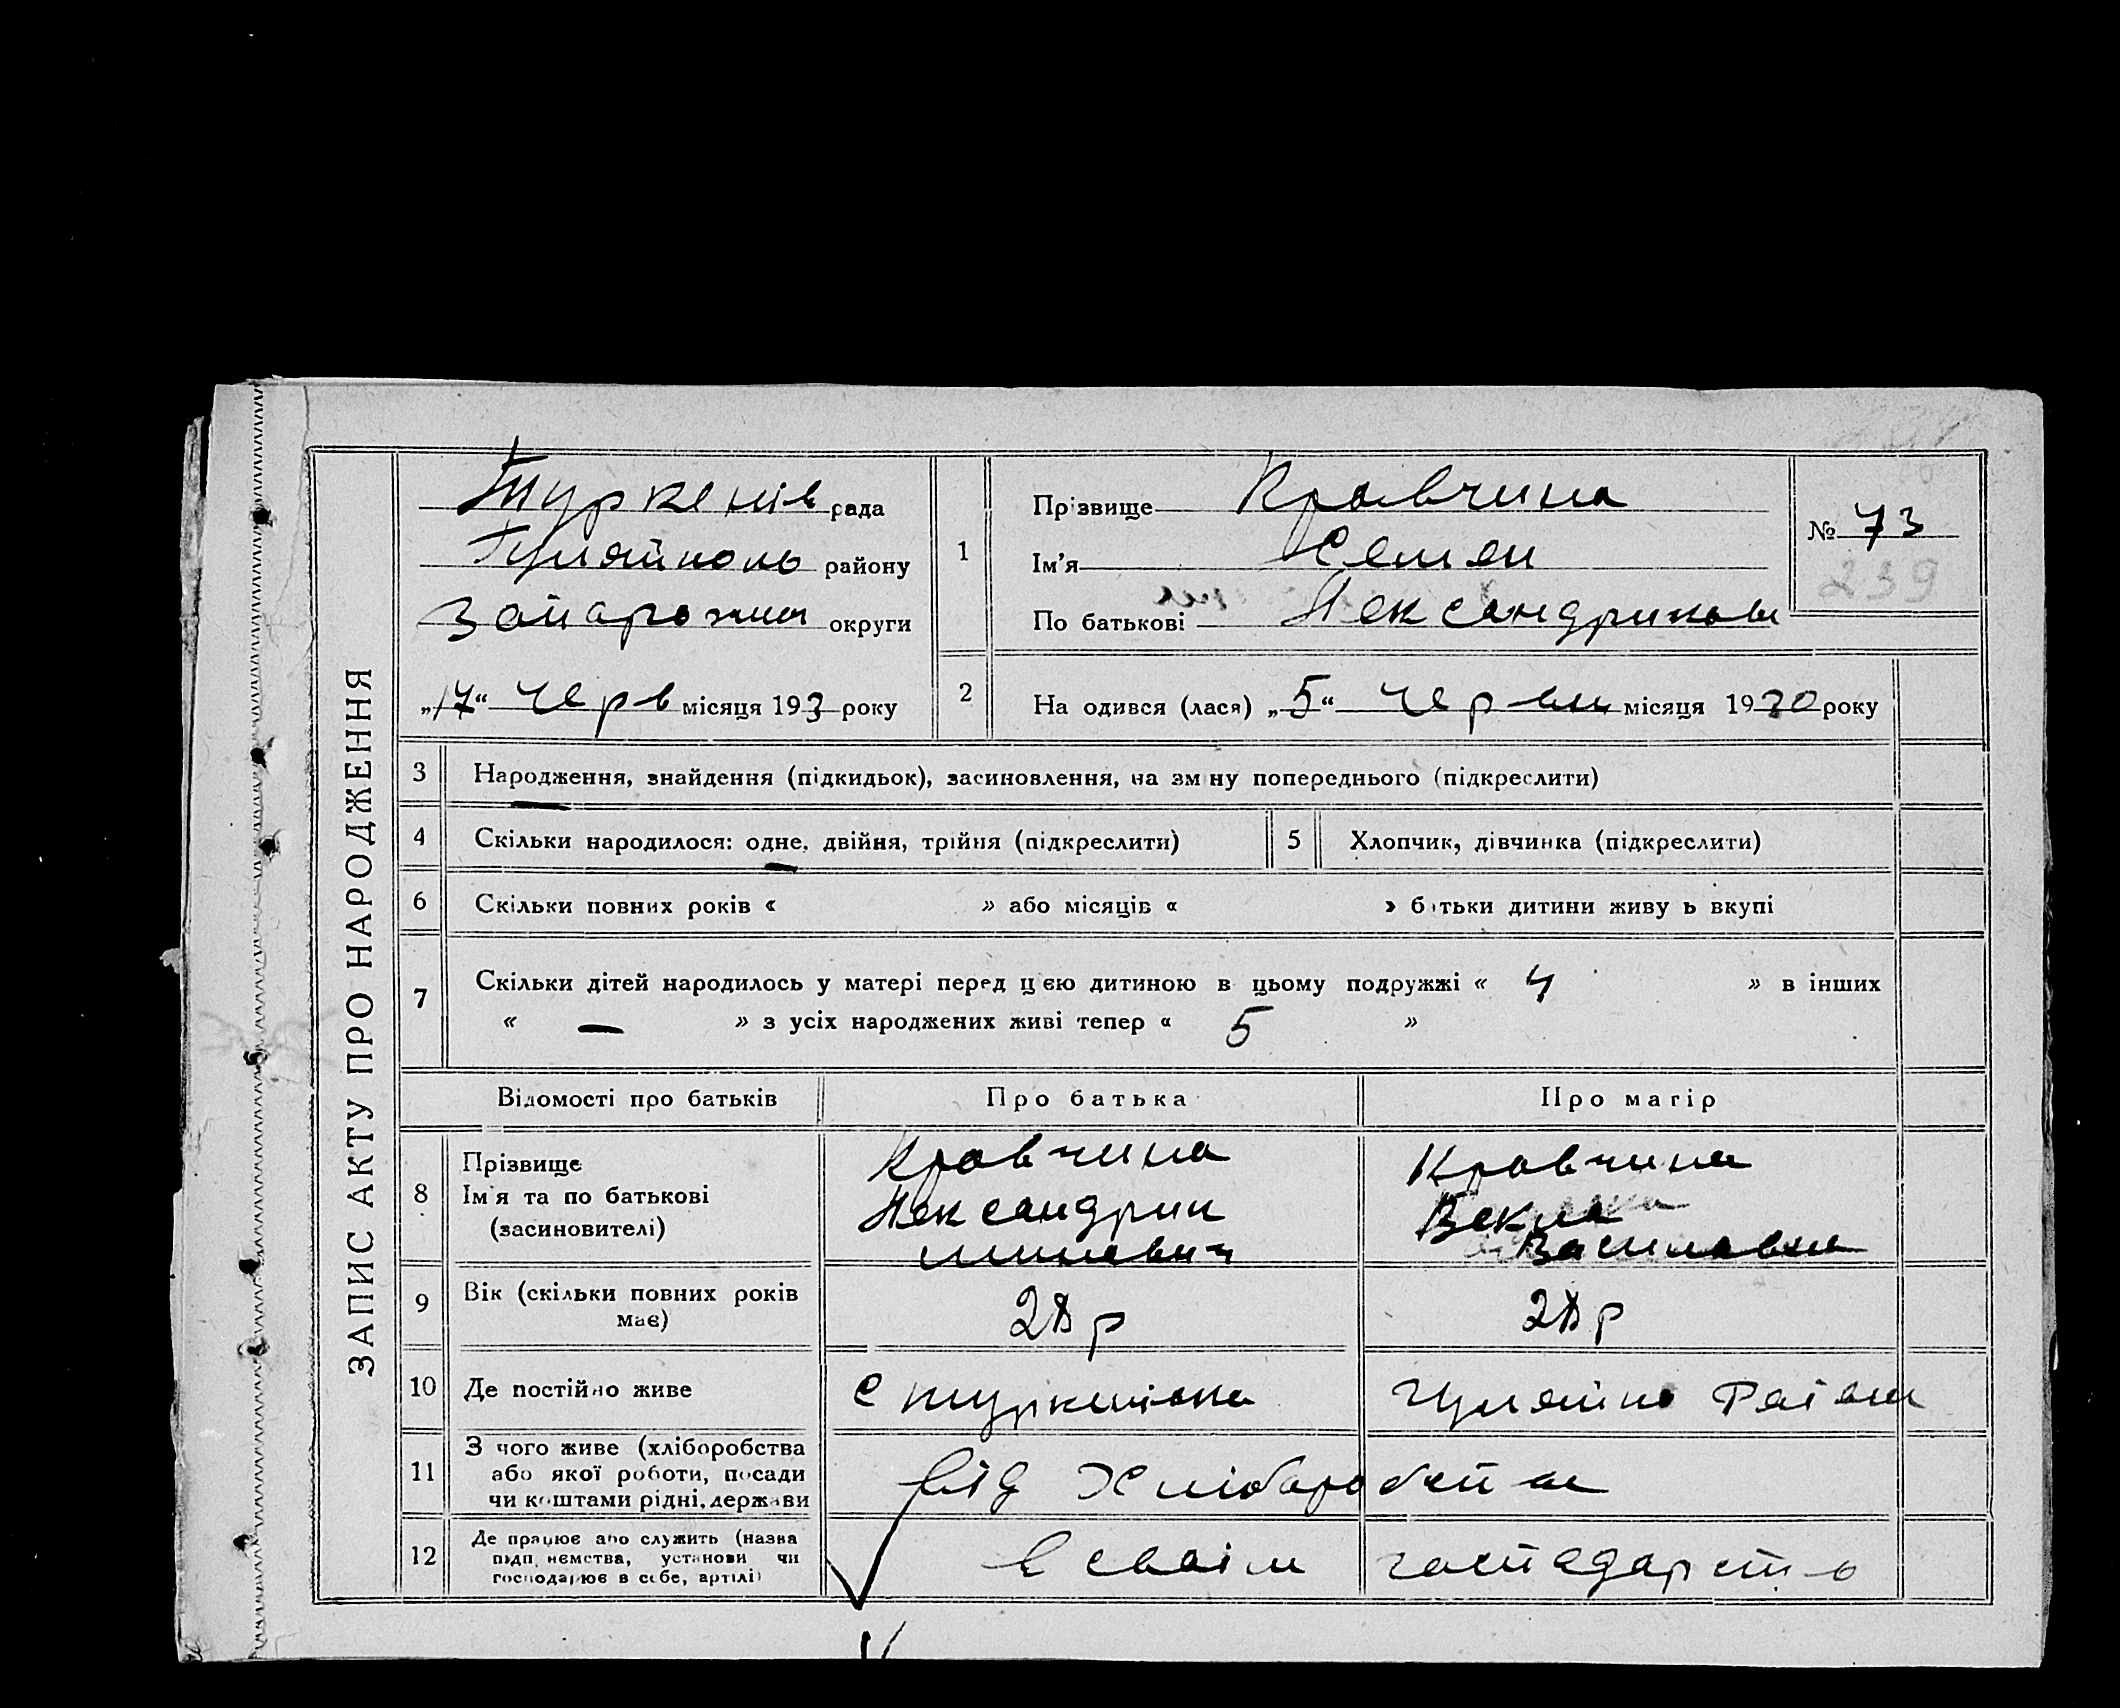 ЗАПИС АКТУ ПРО НАРОДЖЕННЯ
Туркенів рада
Гуляйполь району
Запарожжя округи
„17“ Черв місяця 193 3 року
1
Прізвище Кравчина
Ім'я Семен
По батькові Александрикови
№ 73
239
2
На одився (лася) „5“ Червня місяця 1930 року
3 Народження, знайдення (підкидьок), засиновлення, на зміну попереднього (підкреслити)
4 Скільки народилося: одне, двійня, трійня (підкреслити)
5 Хлопчик, дівчинка (підкреслити)
6 Скільки повних років « » або місяців « » батьки дитини живуть вкупі
7 Скільки дітей народилось у матері перед цією дитиною в цьому подружжі « 4 » в інших
« — » з усіх народжених живі тепер « 5 »
Відомості про батьків Про батька Про матір
8 Прізвище
Ім'я та по батькові
(засиновителі)
Кравчина
Александрик
Кравчина
Векла
Василавна
9 Вік (скільки повних років
має)
28 р
28 р
10 Де постійно живе
с туркинівка
гуляйпо Раіони
11 З чого живе (хліборобства
або якої роботи, посади
чи коштами рідні, держави
Від Хлібаробства
12 Де працює або служить (назва
підп немства, установи чи
господарює в себе, артілі)
в сваім госпадарств